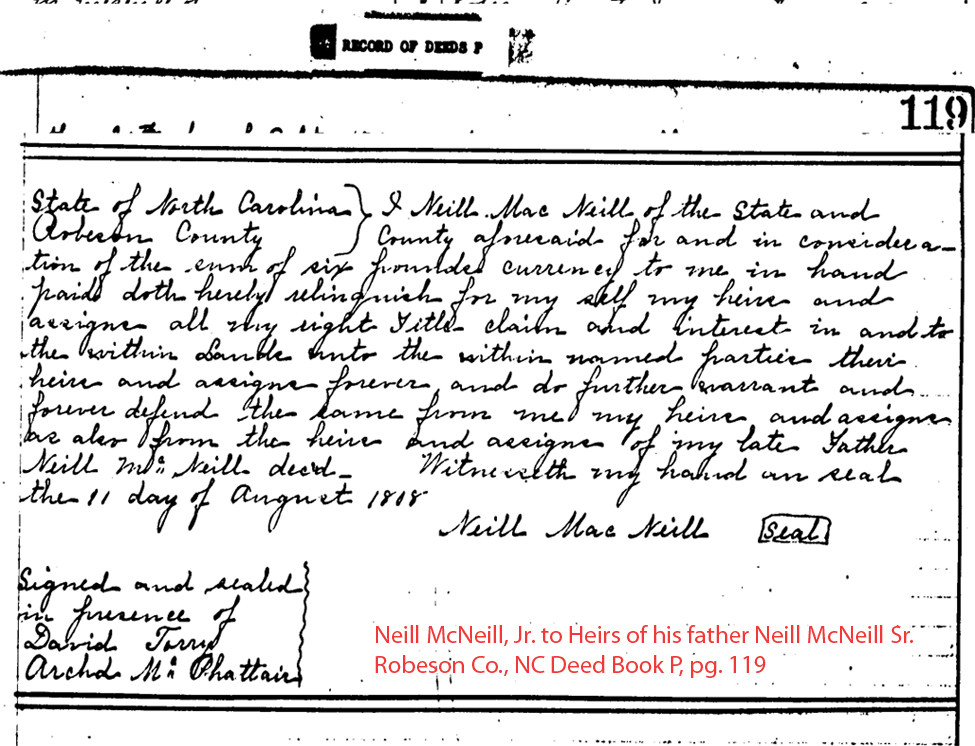 RECORD OF DEEDS P
119
State of North Carolina } I Neill Mac Neill of the State and
Robeson County } County aforesaid for and in considera-
tion of the sum of six pounds currency to me in hand
paid doth hereby relinquish for my self my heirs and
assigns all my right Title claim and interest in and to
the within Lands unto the within named parties their
heirs and assigns forever and do further warrant and
forever defend the same from me my heirs and assigns
as also from the heirs and assigns of my late Father
Neill Mc Neill decd_ Witnesseth my hand an seal
the 11 day of August 1808
Neill Mac Neill Seal
Signed and sealed
in presence of
David Torry
Archd Mc Phattair
Neill McNeill, Jr. to Heirs of his father Neill McNeill Sr.
Robeson Co., NC Deed Book P, pg. 119